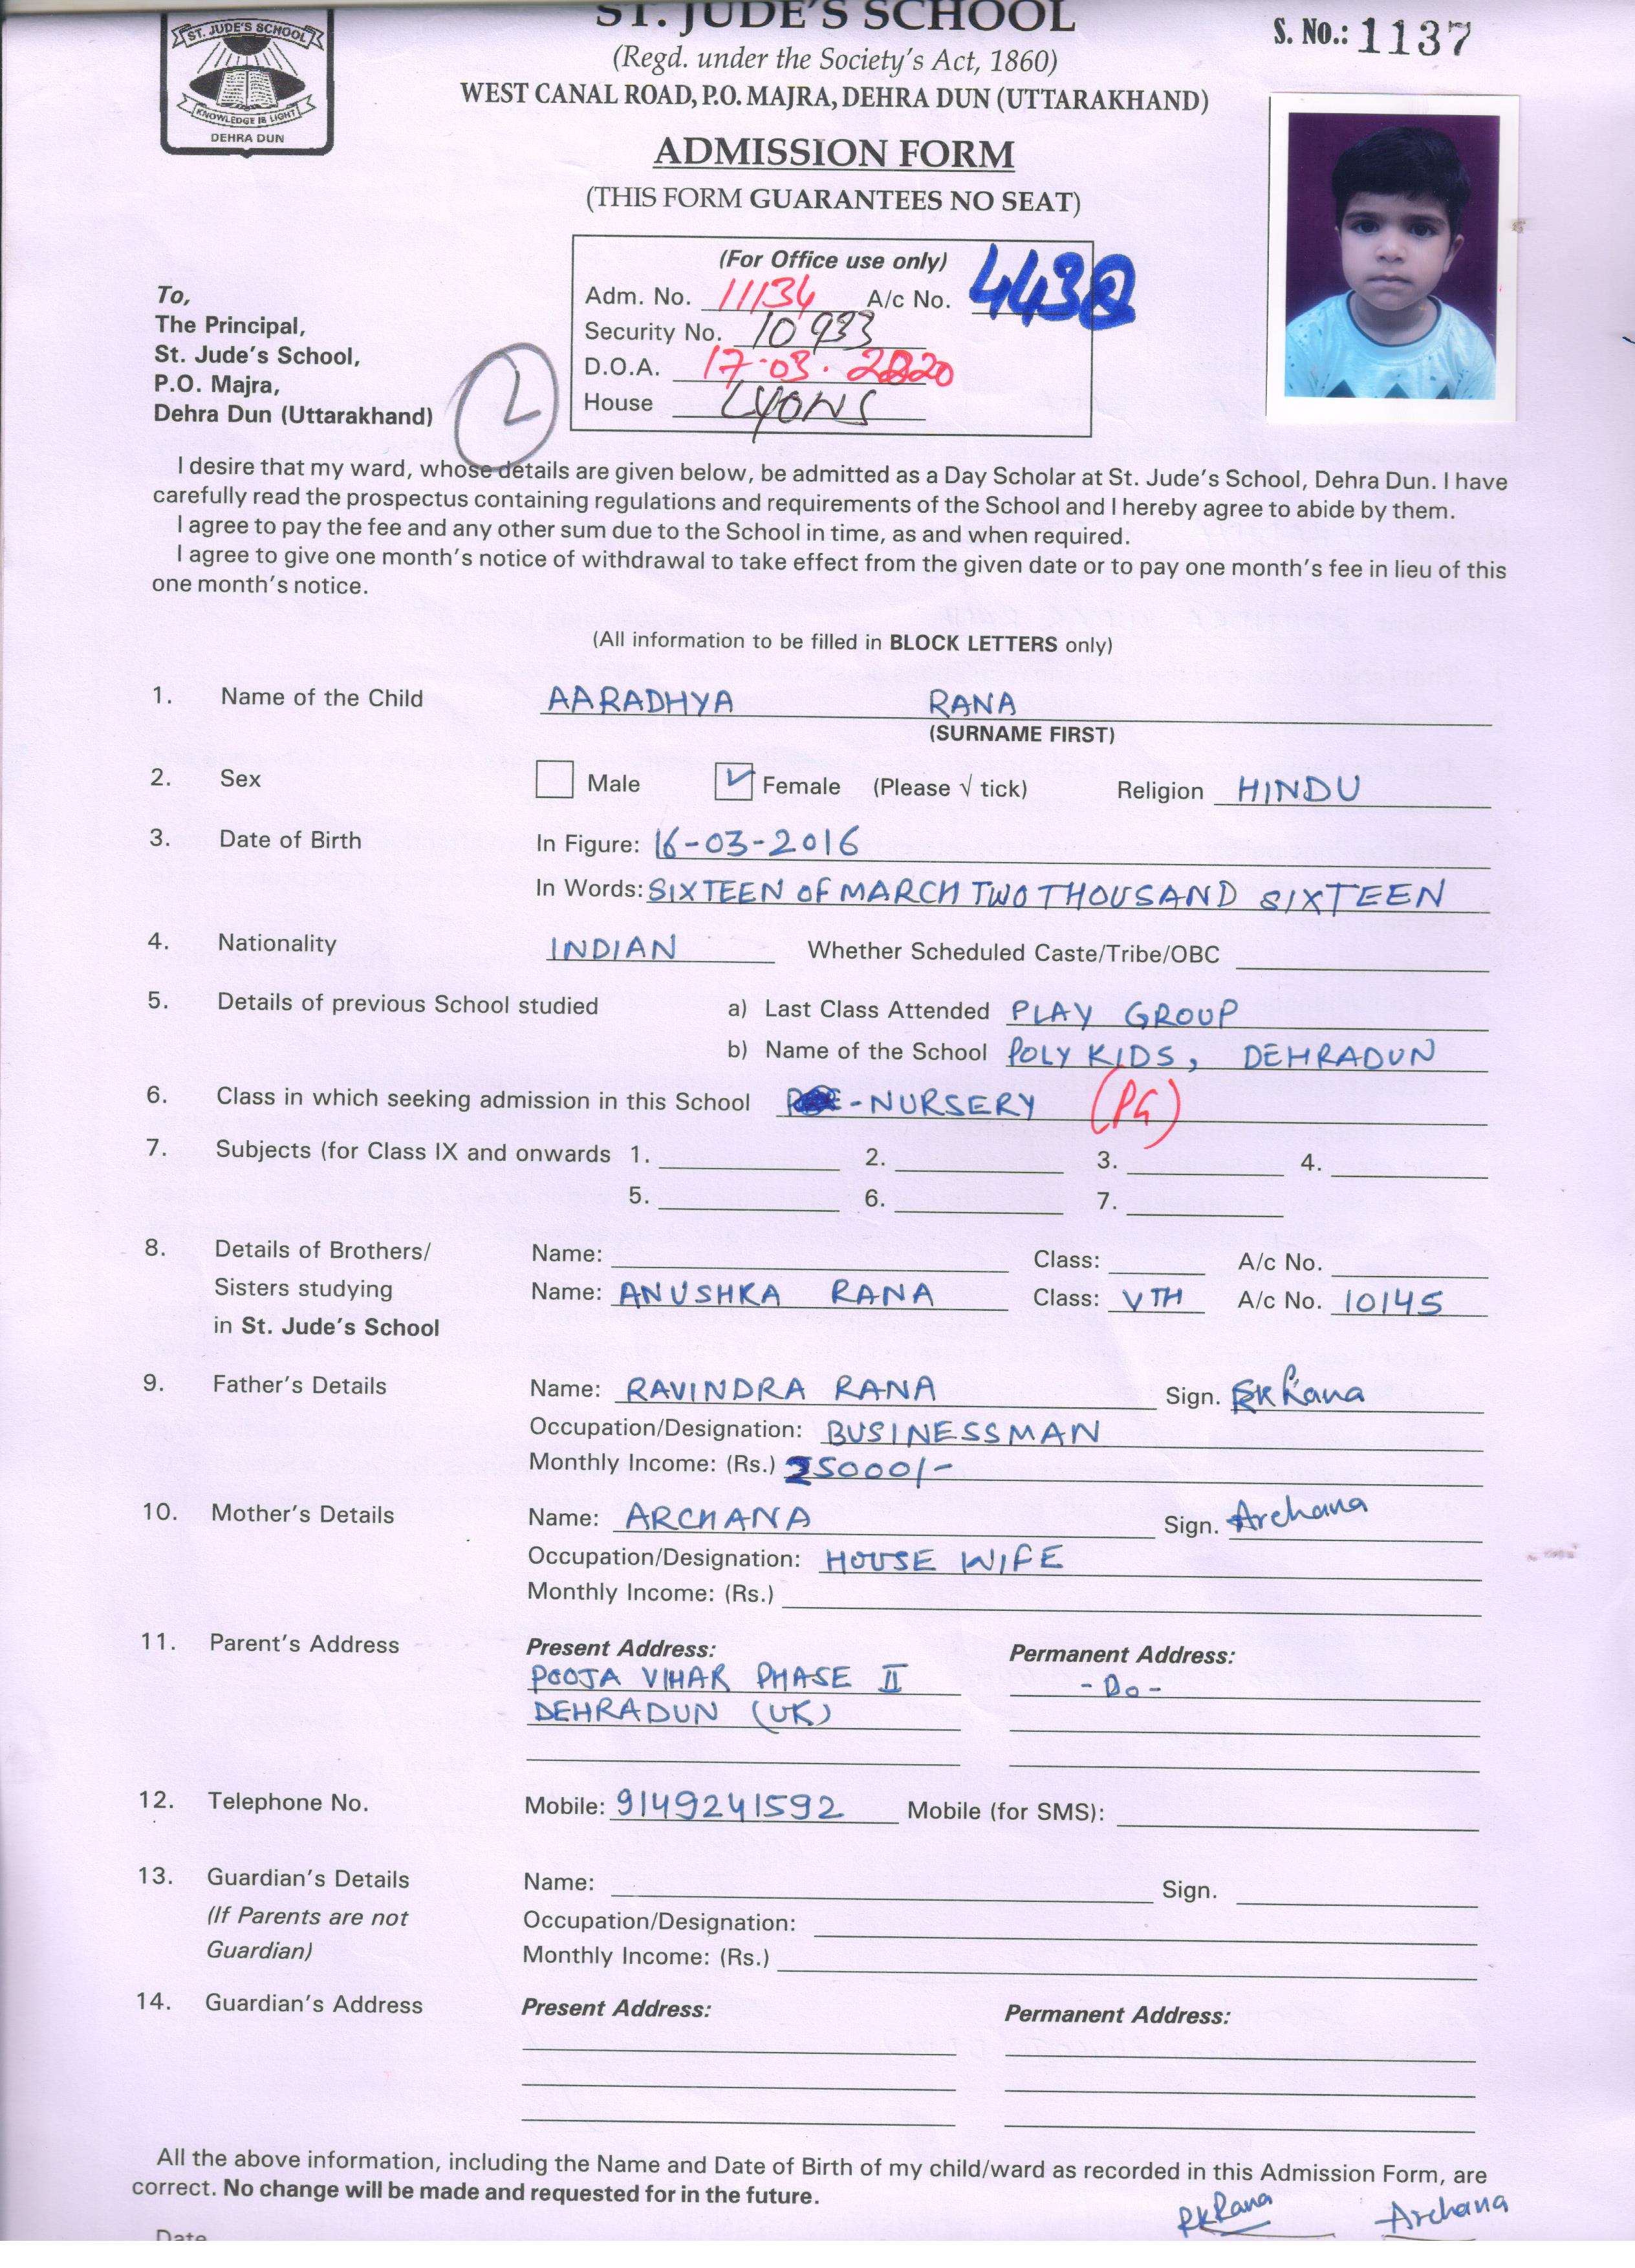 ST. JUDE'S SCHOOL
S. No.: 1137
ST. JUDE'S SCHOOL
KNOWLEDGE IS LIGHT
DEHRA DUN
(Regd. under the Society's Act, 1860)
WEST CANAL ROAD, P.O. MAJRA, DEHRA DUN (UTTARAKHAND)
ADMISSION FORM
(THIS FORM GUARANTEES NO SEAT)
(For Office use only)
Adm. No. 11134 A/c No. 4438
Security No. 10933
D.O.A. 17-03-2020
House LYONS
To,
The Principal,
St. Jude's School,
P.O. Majra,
Dehra Dun (Uttarakhand)
2
I desire that my ward, whose details are given below, be admitted as a Day Scholar at St. Jude's School, Dehra Dun. I have
carefully read the prospectus containing regulations and requirements of the School and I hereby agree to abide by them.
I agree to pay the fee and any other sum due to the School in time, as and when required.
I agree to give one month's notice of withdrawal to take effect from the given date or to pay one month's fee in lieu of this
one month's notice.
(All information to be filled in BLOCK LETTERS only)
1. Name of the Child AARADHYA RANA
(SURNAME FIRST)
2. Sex Male Female (Please √ tick) Religion HINDU
3. Date of Birth In Figure: 16-03-2016
In Words: SIXTEEN OF MARCH TWO THOUSAND SIXTEEN
4. Nationality INDIAN Whether Scheduled Caste/Tribe/OBC
5. Details of previous School studied a) Last Class Attended PLAY GROUP
b) Name of the School POLY KIDS, DEHRADUN
6. Class in which seeking admission in this School -NURSERY (PG)
7. Subjects (for Class IX and onwards 1. 2. 3. 4.
5. 6. 7.
8. Details of Brothers/ Name: Class: A/c No.
Sisters studying Name: ANUSHKA RANA Class: VTH A/c No. 10145
in St. Jude's School
9. Father's Details Name: RAVINDRA RANA Sign. RKRana
Occupation/Designation: BUSINESSMAN
Monthly Income: (Rs.) 25000/-
10. Mother's Details Name: ARCHANA Sign. Archana
Occupation/Designation: HOUSE WIFE
Monthly Income: (Rs.)
11. Parent's Address Present Address: Permanent Address:
POOJA VIHAR PHASE II -Do-
DEHRADUN (UK)
12. Telephone No. Mobile: 9149241592 Mobile (for SMS):
13. Guardian's Details Name: Sign.
(If Parents are not Occupation/Designation:
Guardian) Monthly Income: (Rs.)
14. Guardian's Address Present Address: Permanent Address:
All the above information, including the Name and Date of Birth of my child/ward as recorded in this Admission Form, are
correct. No change will be made and requested for in the future.
RKRana Archana
Date